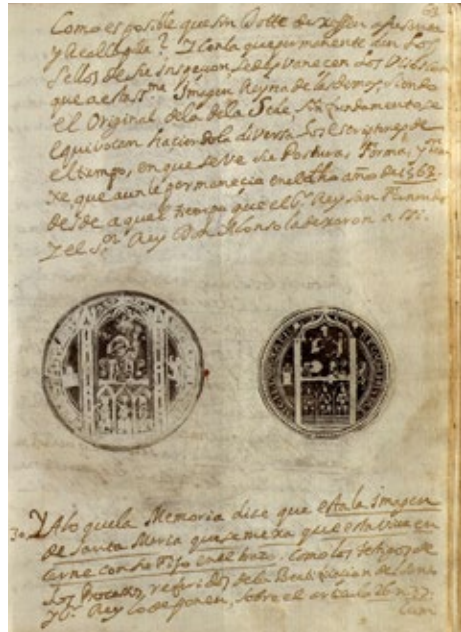 63
Como es posible que sin Dotte dexassen a
y a ? I con la que permanente aun los
Sellos de su Inspeccion, se desvanecen los
que a esta Sma Imagen Reyna de las demas, siendo
el Original de la de la Sede, sin fundamento, se
equivocan haciendola diversa los Escriptores, de
el tiempo, en que se ve su Postura, Forma, y
xe que aun le permanecia en el dho año de 1563.
desde aquel tiempo que el Sto Rey San Fernando
I el Sr Rey Don Alonso la dexaron a
30. Y A lo que la Memoria dice que esta la Imagen
de Santa Maria que semexa que esta viva en
carne con su Fijo en el brazo. Como los testigos de
los Procesos, referidos de la Beatificacion del
Rey lo deponen, sobre el articulo 26. n. 27: